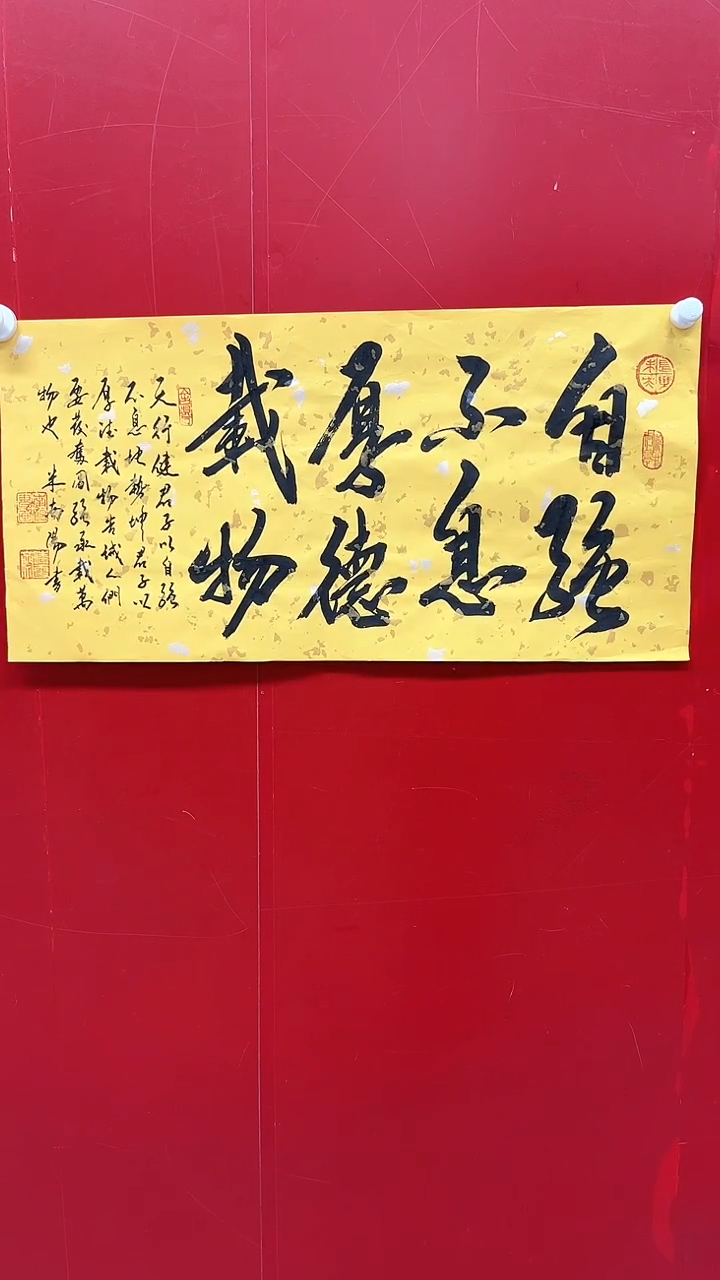 自強
不息
厚德
載物
天行健君子以自強
不息地勢坤君子以
厚德載物告誡人們
要發奮圖強承載萬
物也
米南陽書